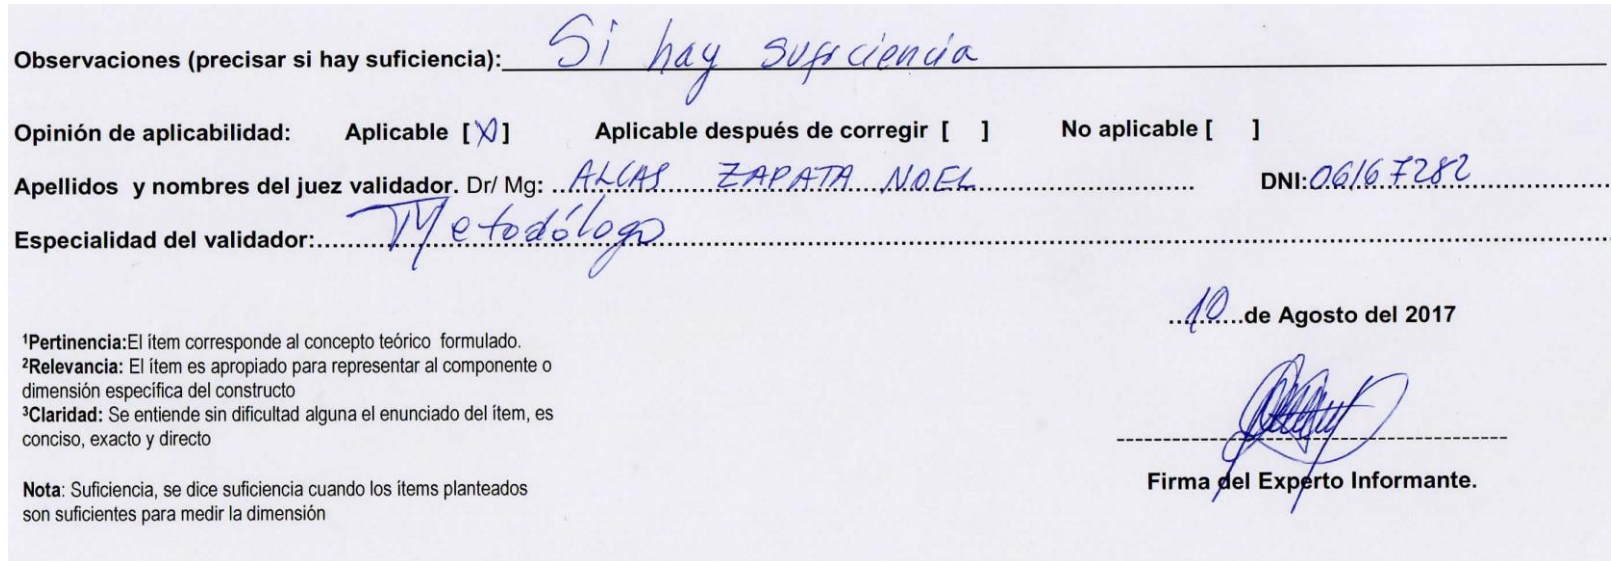 Observaciones (precisar si hay suficiencia): Si hay suficiencia
Opinión de aplicabilidad: Aplicable [X] Aplicable después de corregir [ ] No aplicable [ ]
Apellidos y nombres del juez validador. Dr/ Mg: ALCAS ZAPATA NOEL DNI: 06167282
Especialidad del validador: Metodólogo
10 de Agosto del 2017
¹Pertinencia:El ítem corresponde al concepto teórico formulado.
²Relevancia: El ítem es apropiado para representar al componente o
dimensión específica del constructo
³Claridad: Se entiende sin dificultad alguna el enunciado del ítem, es
conciso, exacto y directo
Nota: Suficiencia, se dice suficiencia cuando los ítems planteados
son suficientes para medir la dimensión
Firma del Experto Informante.